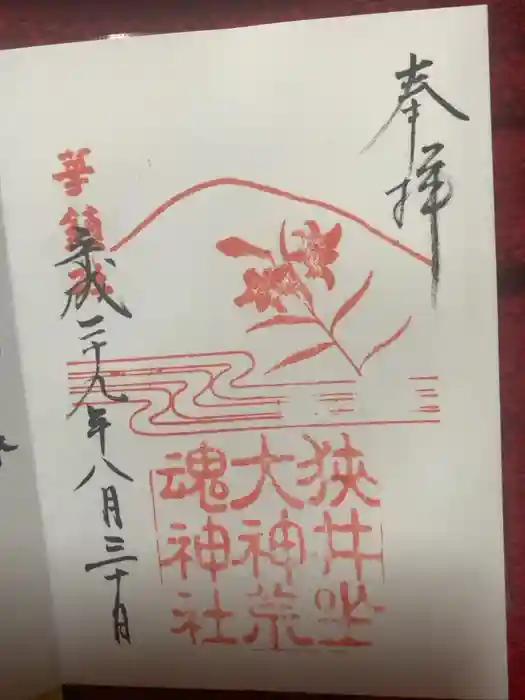 奉拝
狭井坐
大神荒
魂神社
華鎮社
平成二十九年八月三十月